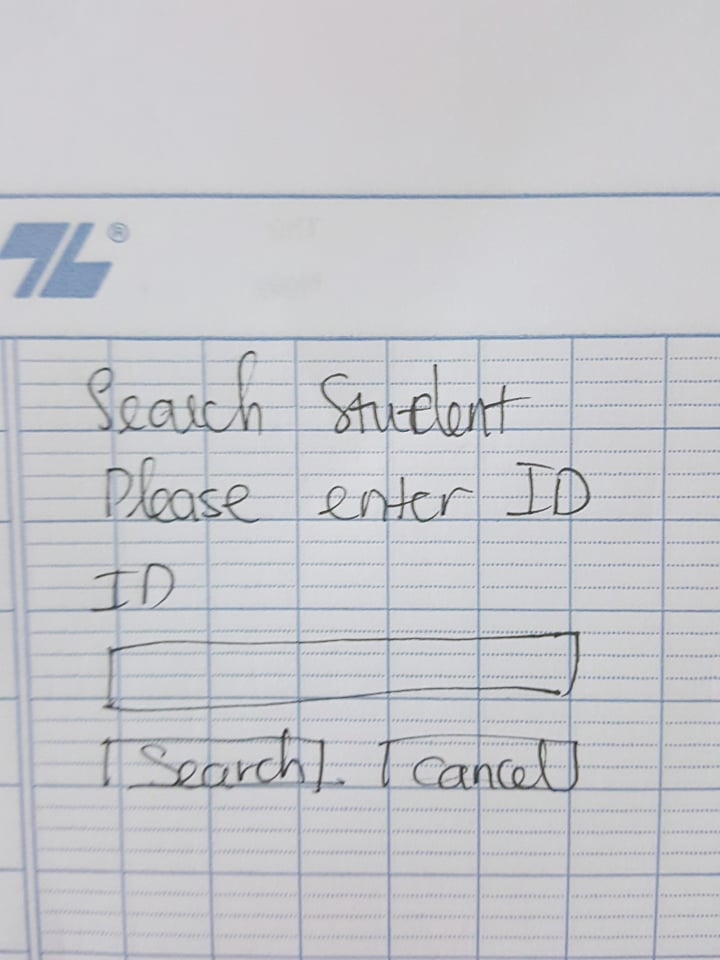 Search Student
Please enter ID
ID
[Search]. [cancel]